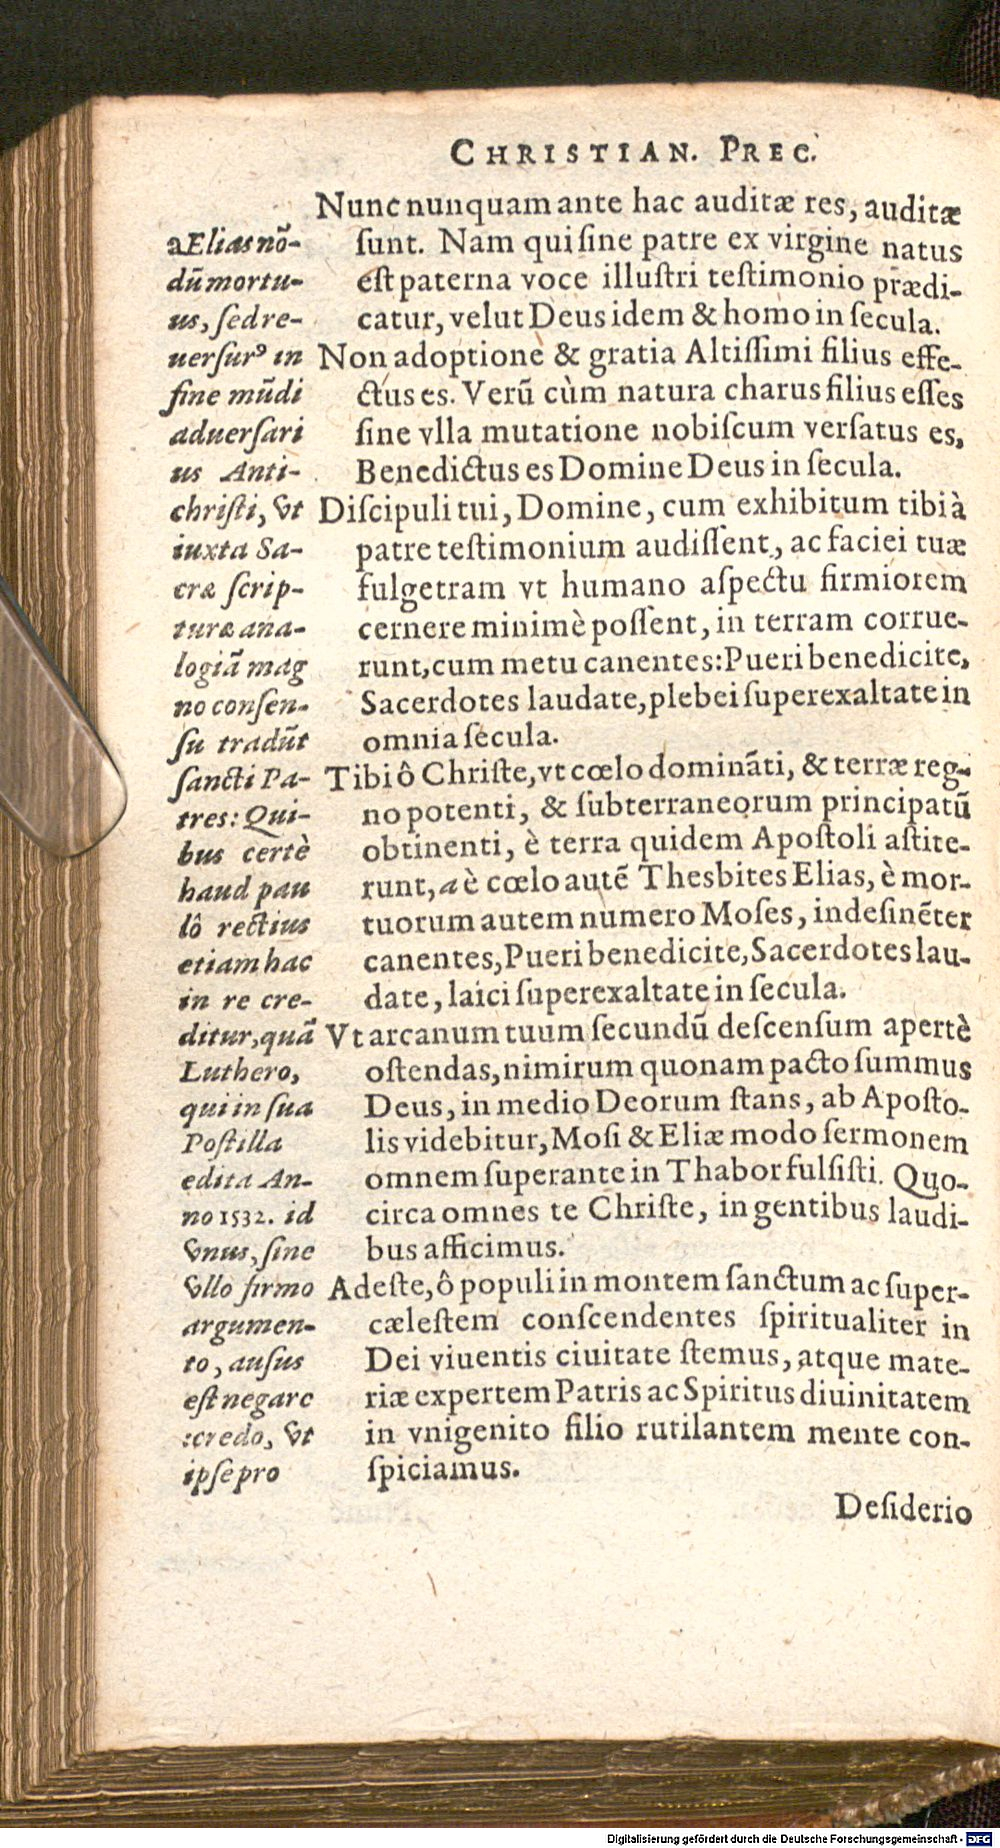 CHRISTIAN. PREC.
Nunc nunquam ante hac auditæ res, auditæ
ſunt. Nam qui ſine patre ex virgine natus
eſt paterna voce illuſtri teſtimonio prædi-
catur, velut Deus idem & homo in ſecula.
Non adoptione & gratia Altiſſimi filius effe-
ctus es. Verũ cùm natura charus filius eſſes
ſine vlla mutatione nobiſcum verſatus es,
Benedictus es Domine Deus in ſecula.
Diſcipuli tui, Domine, cum exhibitum tibi à
patre teſtimonium audiſſent, ac faciei tuæ
fulgetram vt humano aſpectu firmiorem
cernere minimè poſſent, in terram corrue-
runt, cum metu canentes: Pueri benedicite,
Sacerdotes laudate, plebei ſuperexaltate in
omnia ſecula.
Tibi ô Chriſte, vt cœlo dominãti, & terræ reg-
no potenti, & ſubterraneorum principatũ
obtinenti, è terra quidem Apoſtoli aſtite-
runt, a è cœlo autẽ Thesbites Elias, è mor-
tuorum autem numero Moſes, indeſinẽter
canentes, Pueri benedicite, Sacerdotes lau-
date, laici ſuperexaltate in ſecula.
Vt arcanum tuum ſecundũ deſcenſum apertè
oſtendas, nimirum quonam pacto ſummus
Deus, in medio Deorum ſtans, ab Apoſto-
lis videbitur, Moſi & Eliæ modo ſermonem
omnem ſuperante in Thabor fulſiſti. Quo-
circa omnes te Chriſte, in gentibus laudi-
bus afficimus.
Adeſte, ô populi in montem ſanctum ac ſuper-
cæleſtem conſcendentes ſpiritualiter in
Dei viuentis ciuitate ſtemus, atque mate-
riæ expertem Patris ac Spiritus diuinitatem
in vnigenito filio rutilantem mente con-
ſpiciamus.
Deſiderio
a Elias nõ-
dũ mortu-
us, ſed re-
uerſurꝰ in
fine mũdi
aduerſari
us Anti-
chriſti, vt
iuxta Sa-
cræ ſcrip-
turæ ana-
logiã mag
no conſen-
ſu tradũt
ſancti Pa-
tres: Qui-
bus certè
haud pau
lô rectius
etiam hac
in re cre-
ditur, quã
Luthero,
qui in ſua
Poſtilla
edita An-
no 1532. id
vnus, ſine
vllo firmo
argumen-
to, auſus
eſt negare
:credo, vt
ipſe pro
Digitalisierung gefördert durch die Deutsche Forschungsgemeinschaft - DFG